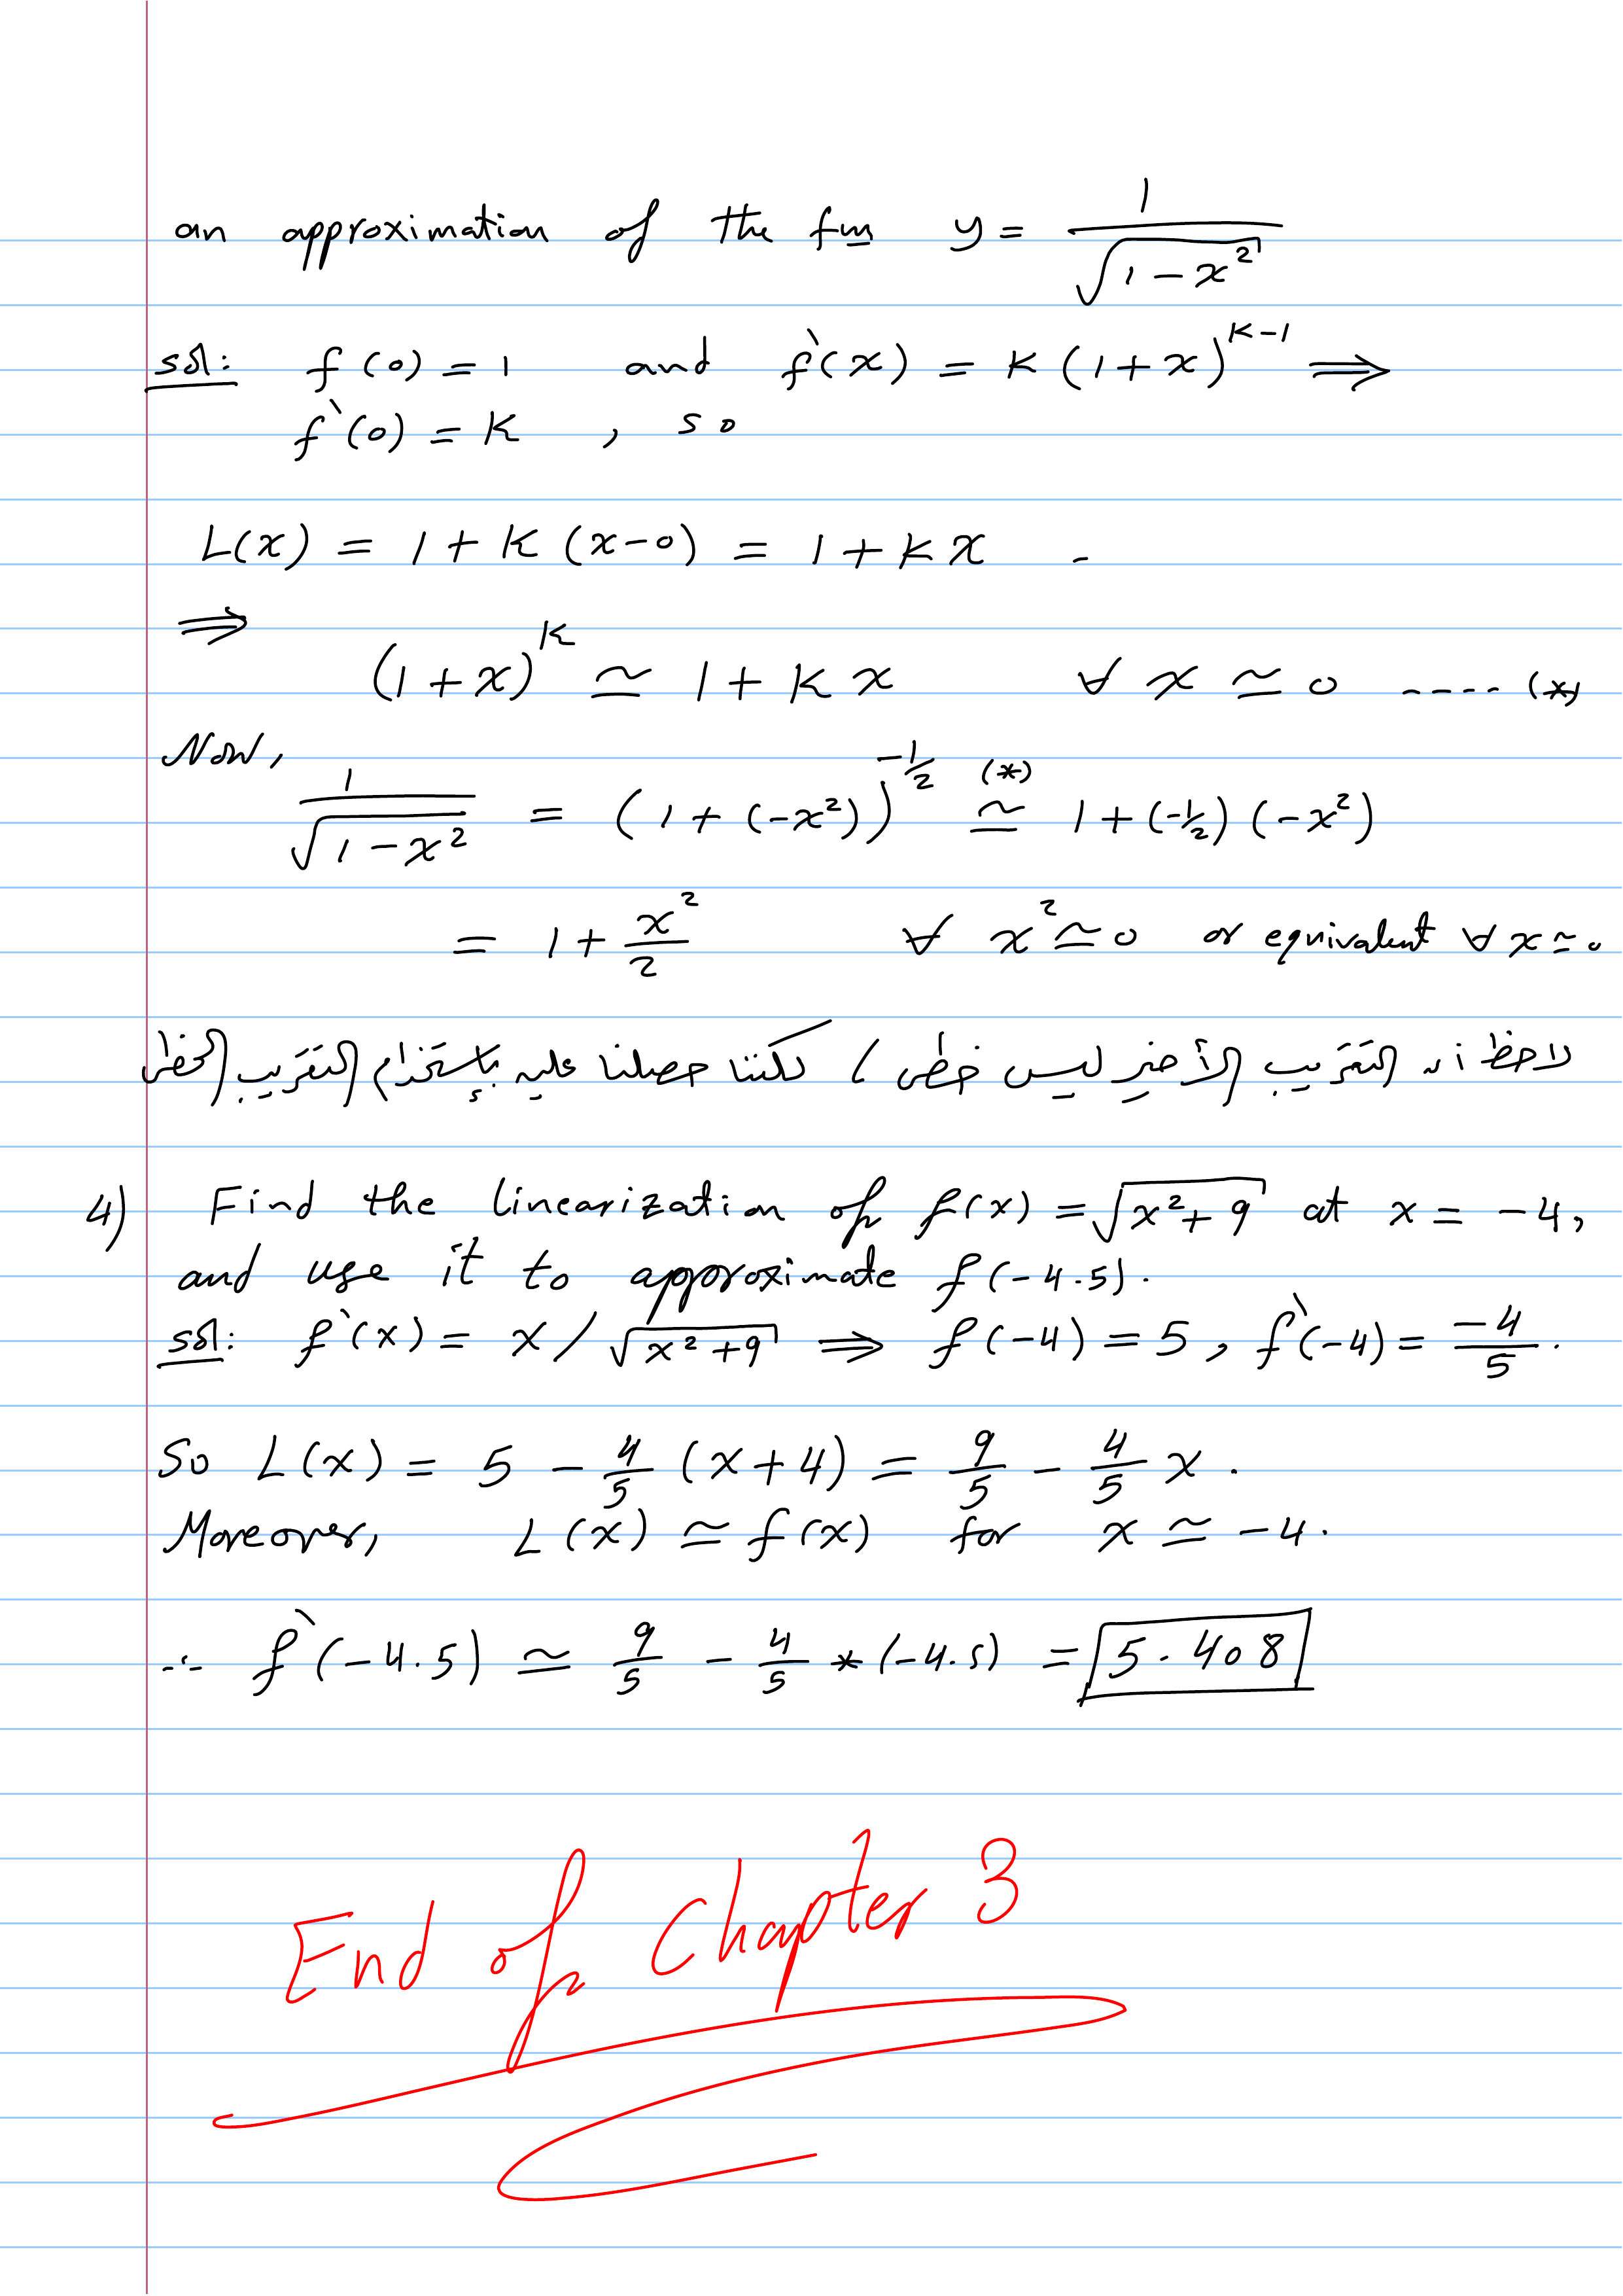 an approximation of the fun y = 1/√(1-x²)
sol: f(0) = 1 and f`(x) = K(1+x)^(K-1) ⟹
f`(0) = K , so
L(x) = 1 + K(x-0) = 1 + Kx .
⟹
(1+x)^K ≃ 1 + Kx ∀ x ≃ 0 ----- (*)
Now,
1/√(1-x²) = (1+(-x²))^(-1/2) ≃ (*) 1+(-1/2)(-x²)
= 1 + x²/2 ∀ x² ≃ 0 or equivalent ∀ x ≃ 0
لاحظ أن التقريب الأخير ليس خطي ، لكننا حصلنا عليه بإستخدام التقريب الخطي
4) Find the linearization of f(x) = √(x²+9) at x = -4,
and use it to approximate f(-4.5).
sol: f`(x) = x/√(x²+9) ⟹ f(-4) = 5, f`(-4) = -4/5 .
So L(x) = 5 - 4/5 (x+4) = 9/5 - 4/5 x .
Moreover, L(x) ≃ f(x) for x ≃ -4.
∴ f`(-4.5) ≃ 9/5 - 4/5 * (-4.5) = 5.408
End of Chapter 3